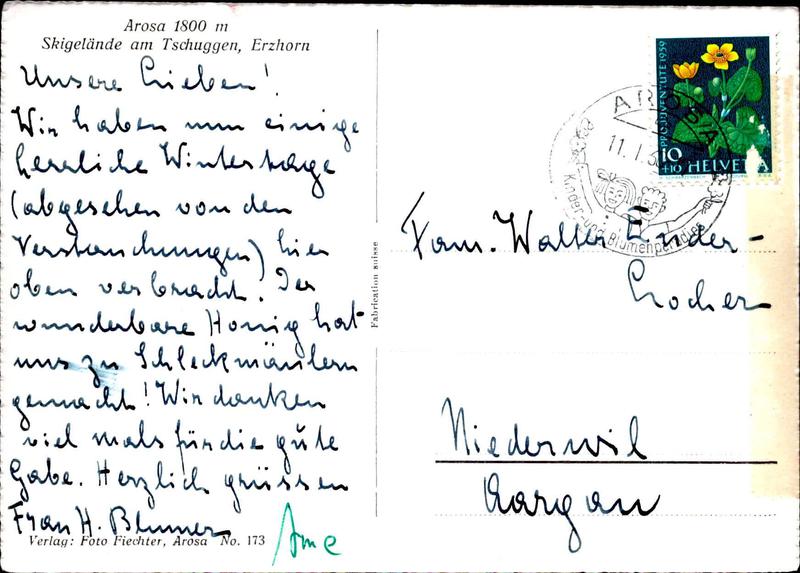 Arosa 1800 m
Skigelände am Tschuggen, Erzhorn
Unsere Lieben!
Wir haben nun einige
herrliche Wintertage
(abgesehen von den
Verstauchungen) hier
oben verbracht. Der
wunderbare Honig hat
uns zu Schleckmäulern
gemacht! Wir danken
viel mals für die gute
Gabe. Herzlich grüssen
Frau H. Blumer
Verlag: Foto Fiechter, Arosa No. 173
Fabrication suisse
PRO JUVENTUTE 1959
10
+10 HELVETIA
AROSA
11. I. 6
Kinder- und Blumenparadies
Fam. Walter Ender-
Locher
Niederwil
Aargau